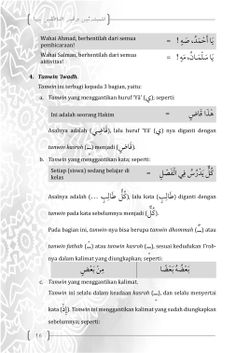 Wahai Ahmad, berhentilah dari semua pembicaraan! = يَا أَحْمَدُ، صَهٍ !
Wahai Salman, berhentilah dari semua aktivitas! = يَا سَلْمَانُ، مَهٍ !
4. Tanwin 'Iwadh
Tanwin ini terbagi kepada 3 bagian, yaitu:
a. Tanwin yang menggantikan huruf 'Yâ' (ي); seperti:
Ini adalah seorang Hakim = هَذَا قَاضٍ
Asalnya adalah (قَاضِي), lalu huruf 'Yâ' (ي) nya diganti dengan
tanwin kasrah (ـٍ) menjadi (قَاضٍ).
b. Tanwin yang menggantikan kata; seperti:
Setiap (siswa) sedang belajar di kelas = كُلٌّ يَدْرُسُ فِي الْفَصْلِ
Asalnya adalah (كُلُّ طَالِبٍ ...), lalu kata (طَالِبٍ) diganti dengan
tanwin pada kata sebelumnya menjadi (كُلٌّ).
Pada bagian ini, tanwin-nya bisa berupa tanwin dhommah (ـٌ) atau
tanwin fathah (ـً) atau tanwin kasrah (ـٍ), sesuai kedudukan I'rob-
nya dalam kalimat yang diungkapkan; seperti:
مِنْ بَعْضٍ بَعْضُهُ بَعْضًا
c. Tanwin yang menggantikan kalimat.
Tanwin ini selalu dalam keadaan kasrah (ـٍ), dan selalu menyertai
kata (إِذٍ). Tanwin ini menggantikan kalimat yang sudah diungkapkan
sebelumnya; seperti:
16